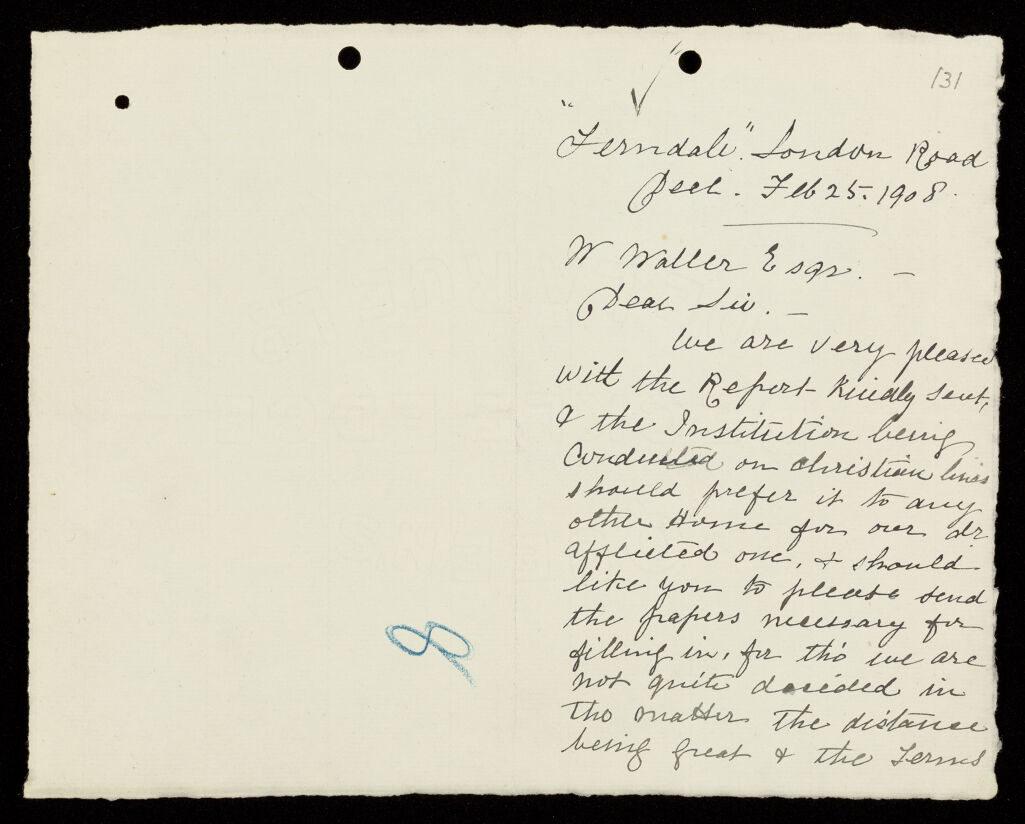 131
"Ferndale". London Road
Deal. Feb 25. 1908.
W Waller Esqr. -
Dear Sir. -
We are very pleased
with the Report kindly sent,
& the Institution being
conducted on christian lines
should prefer it to any
other Home for our dr
afflicted one, & should
like you to please send
the papers necessary for
filling in, for tho' we are
not quite decided in
the matter the distance
being great & the Terms
8